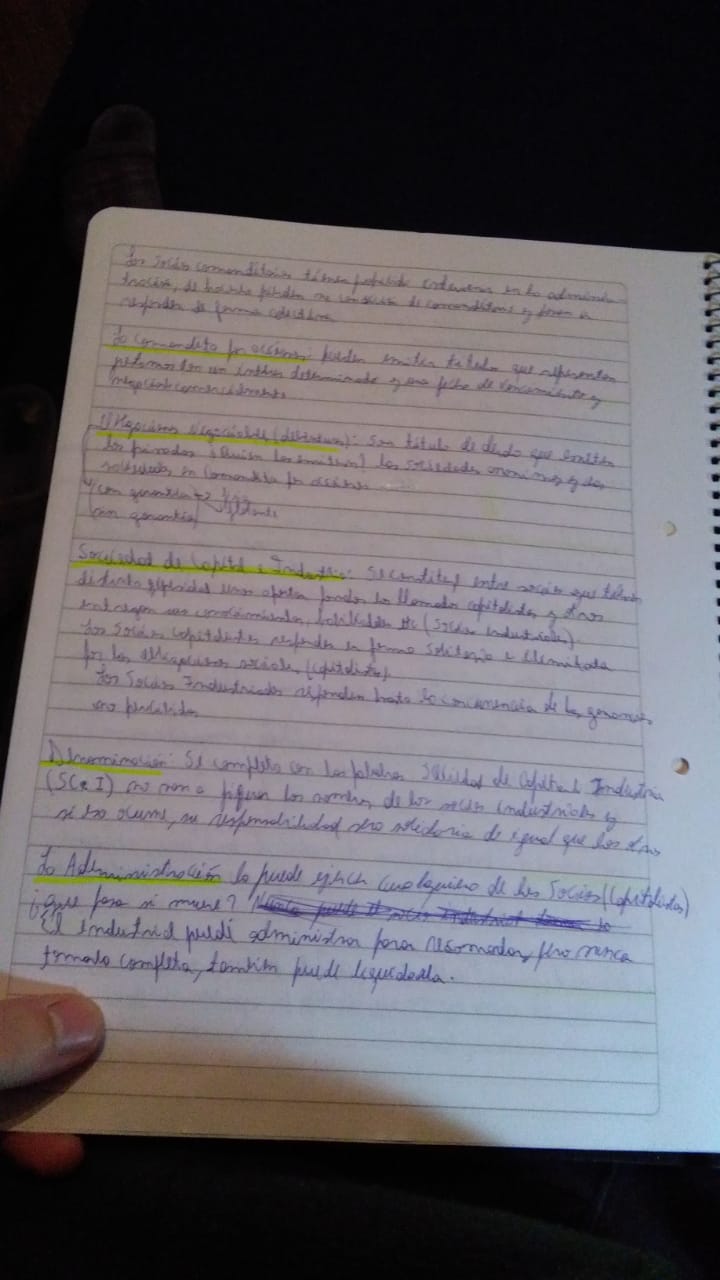 Los socios comanditarios tienen prohibido en la adminis-
tración, de hacerlo pierden su de comanditario y pasan a
responder de forma
La comandita por acciones: pueden emitir título que representan
un interés determinado y una fecha de vencimiento y
negociar comercialmente
Obligaciones Negociables (debentures): Son título de deuda que emiten
los privados ¿Quién los emiten? las sociedades anonimas y las
sociedades en Comandita por acciones
con garantía
sin garantía
Sociedad de Capital e Industria: Se constituye entre socios que tienen
distinta unos aportan fondos los llamados capitalistas y otros
entregan sus conocimientos, habilidades etc (Socios industriales).
Los socios capitalistas responden en forma Solidaria e Ilimitada
por las obligaciones sociales (capitalista)
Los Socios Industriales responden hasta la concurrencia de las ganancias
no percibidas
Denominación: Se completa con las palabras Sociedad de Capital e Industria
(SC e I) no van a figurar los nombres de los socios industriales y
si eso ocurre, su responsabilidad sera solidaria de igual que los otros
La Administración la puede ejercer cualquiera de los Socios (Capitalistas)
¿que pasa si muere?
El Industrial puede administrar para, pero nunca
tomarla completa, tambien puede liquidarla.